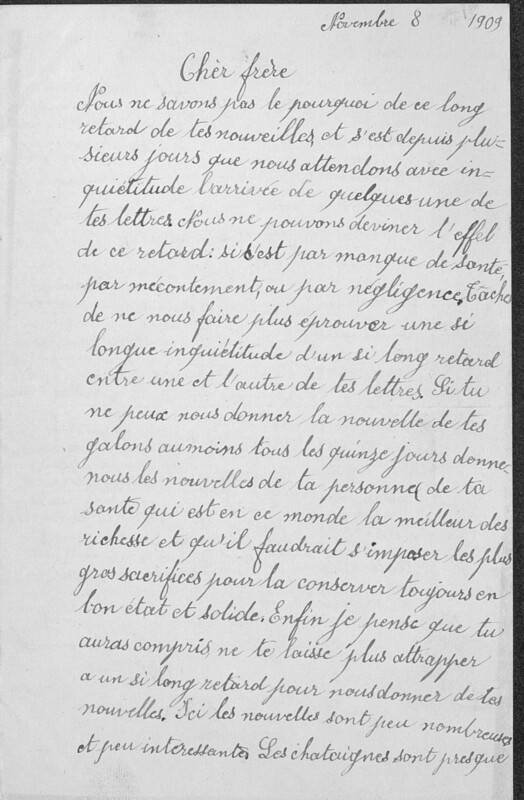 Novembre 8 1909
Chèr frère
Nous ne savons pas le pourquoi de ce long
retard de tes nouveilles, et s'est depuis plu-
sieurs jours que nous attendons avec in-
quiétitude l'arrivée de quelques-une de
tes lettres. Nous ne pouvons deviner l'effel
de ce retard: si s'est par manque de santé,
par mécontement, ou par négligence. Tâche
de ne nous faire plus éprouver une si
longue inquiétitude d'un si long retard
entre une et l'autre de tes lettres. Si tu
ne peux nous donner la nouvelle de tes
galons aumoins tous les quinze jours donne-
nous les nouvelles de ta personne, de ta
santé qui est en ce monde la meilleur des
richesse et qu'il faudrait s'imposer les plus
gros sacrifices pour la conserver toujours en
bon état et solide. Enfin je pense que tu
auras compris ne te laisse plus attrapper
a un si long retard pour nous donner de tes
nouvelles. Ici les nouvelles sont peu nombreuses
et peu interessantes. Les chataignes sont presque